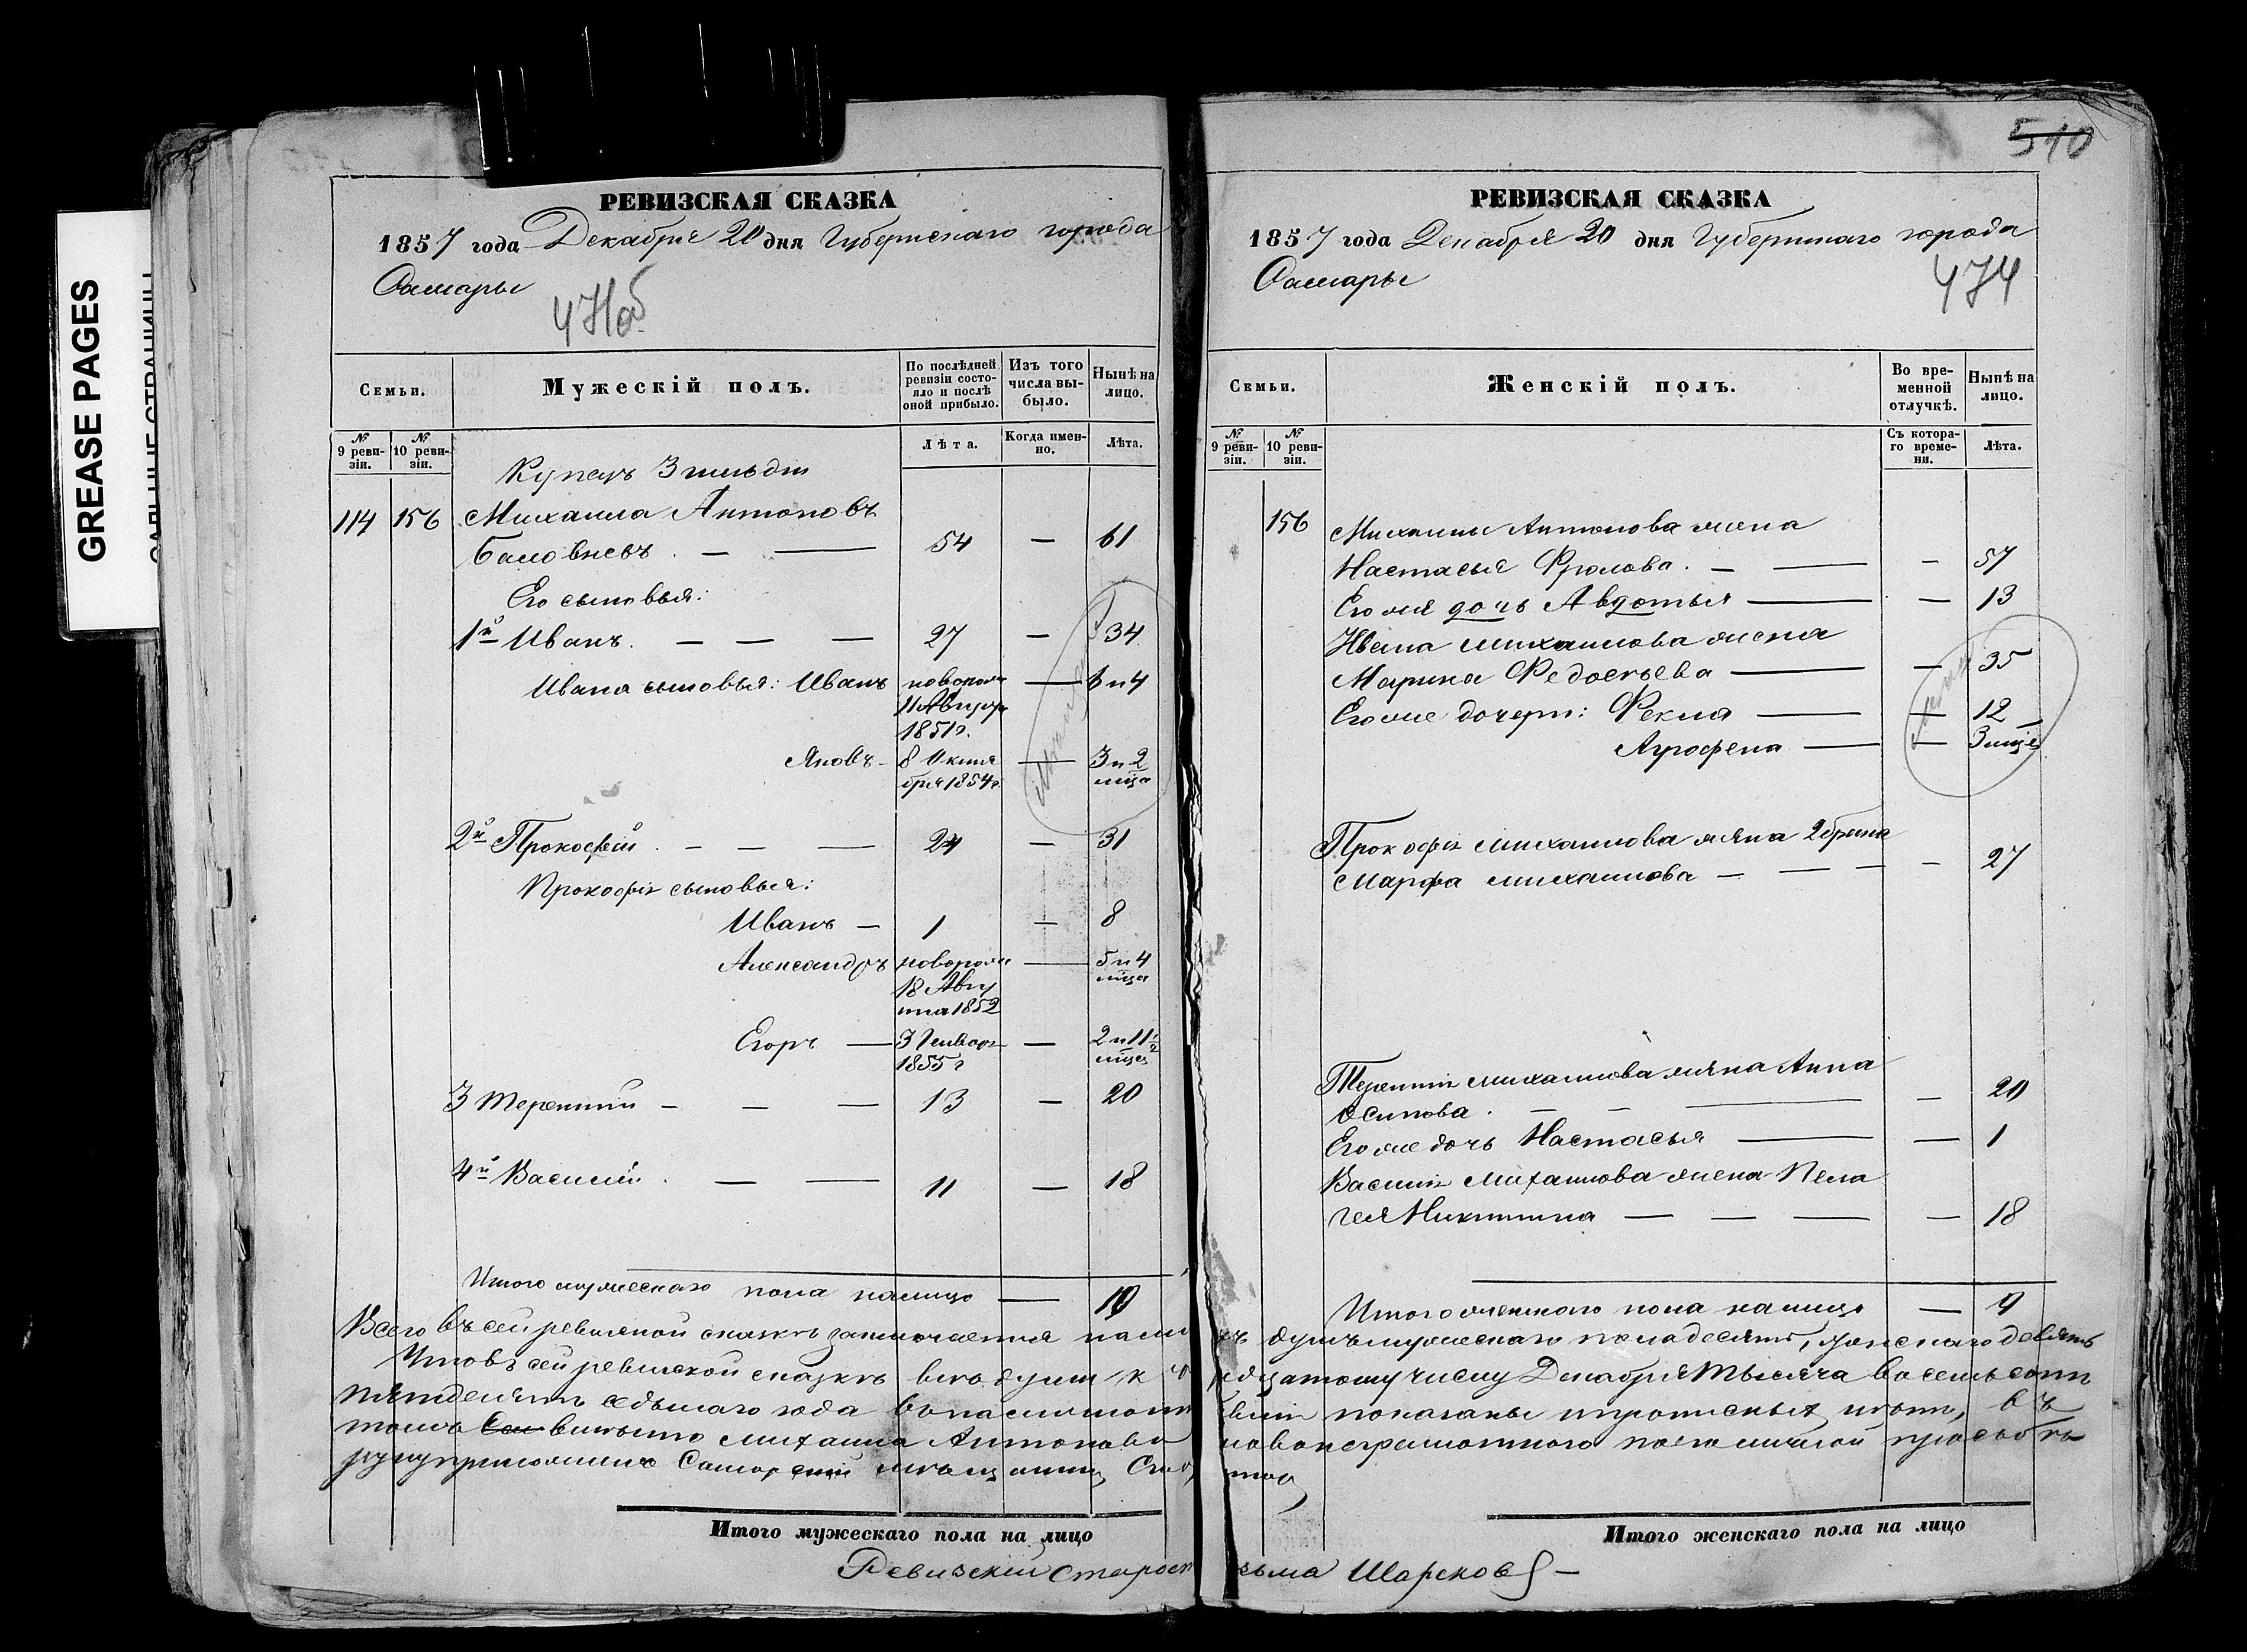 GREASE PAGES
РЕВИЗСКАЯ СКАЗКА
1857 года Декабря 20 дня Губернскаго города
Самары
Семьи.
Мужескій полъ.
По послѣдней ревизіи состояло и послѣ оной прибыло.
Изъ того числа выбыло.
Нынѣ на лицо.
№ 9 ревизіи.
№ 10 ревизіи.
Лѣта.
Когда именно.
Лѣта.
Купецъ 3 гильдіи
114 156 Михаила Антоновъ
Баловневъ. — — 54 — 61
Его сыновья:
1й Иванъ. — — — 27 — 34
Ивана сыновья: Иванъ новорож — 6 и 4
11 Августа
1851 г.
Яковъ — 8 Октя — 3 и 2
бря 1854 г. мца
2й Прокофій — — — 24 — 31
Прокофія сыновья:
Иванъ — 1 — 8
Александръ новорож — 5 и 4
18 Авгу мца
ста 1852
Егоръ — 3 Генвар — 2 и 11 1/2
1855 г мцев
3 Терентій — — — 13 — 20
4й Василій. — — 11 — 18
Итого мужескаго пола налицо — 10
РЕВИЗСКАЯ СКАЗКА
510
1857 года Декабря 20 дня Губернскаго города
Самары
474
Семьи.
Женскій полъ.
Во временной отлучкѣ.
Нынѣ на лицо.
№ 9 ревизіи.
№ 10 ревизіи.
Съ котораго времени.
Лѣта.
156 Михаилы Антонова жена
Настасья Фролова. — — — 57
Его же дочь Авдотья — — 13
Ивана Михаилова жена
Марина Федосѣева — — 35
Его же дочери: Фекла — — 12
Агрофена — — 3 мцев
Прокофія Михаилова жена 2 брака
Марфа Михаилова — — — — 27
Терентія Михаилова жена Анна
Осипова. — — — — 20
Его же дочь Настасья — — 1
Василія Михаилова жена Пела
гея Никитина — — — — 18
Итого женскаго пола налицо — 9
Всего въ сей ревизской сказкѣ заключается нали
цо душъ мужескаго пола десять, женскаго девять
Что въ сей ревизской сказкѣ всѣ души к
дцатому числу Декабря тысяча восемь сотъ
пятьдесятъ седьмаго года въ наличности
показаны и прописныхъ нѣтъ, въ
томъ вмѣсто Михаила Антонова
неграмотнаго по его личной просьбѣ
руку приложилъ Самарскій мѣщанинъ
Итого мужескаго пола на лицо
Итого женскаго пола на лицо
Ревизскій Старост
Шарсковъ —